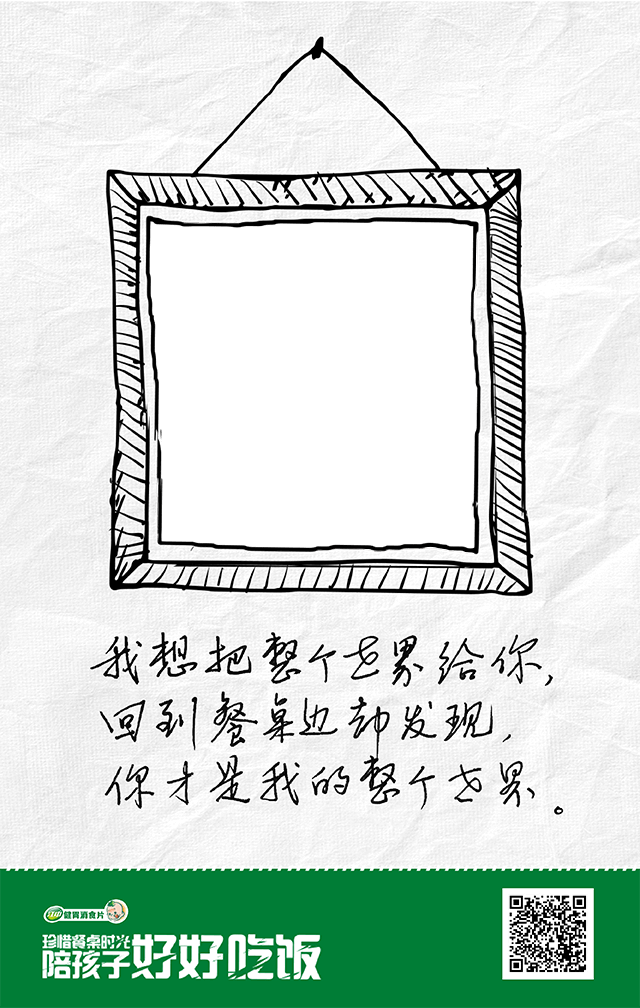 我想把整个世界给你，
回到餐桌边却发现，
你才是我的整个世界。
健胃消食片
珍惜餐桌时光
陪孩子好好吃饭